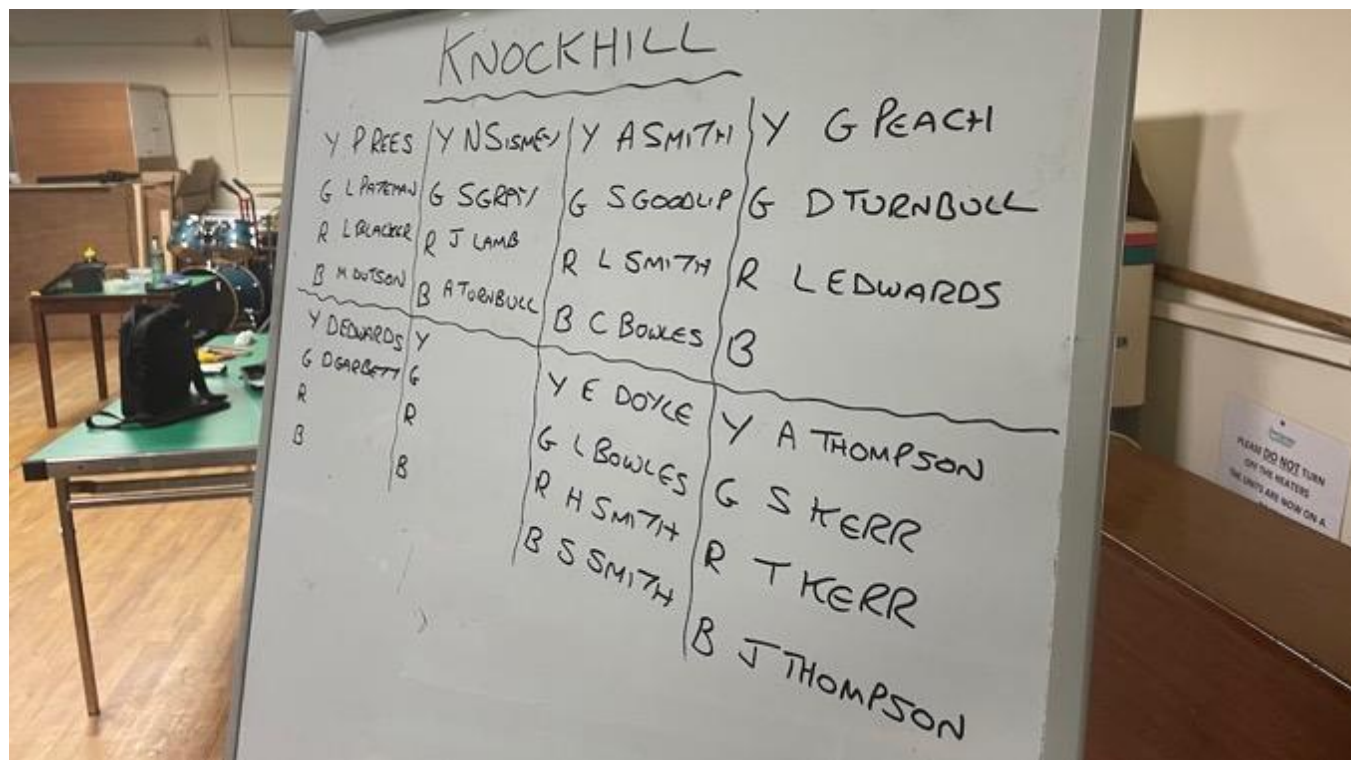 KNOCKHILL
Y P REES
G L PATEMAN
R L BLACKER
B M DUTSON
Y N SISMEY
G S GRAY
R J LAMB
B A TURNBULL
Y A SMITH
G S GOODLIP
R L SMITH
B C BOWLES
Y G PEACH
G D TURNBULL
R L EDWARDS
B
Y D EDWARDS
G D GARBETT
R
B
Y
G
R
B
Y E DOYLE
G L BOWLES
R H SMITH
B S SMITH
Y A THOMPSON
G S KERR
R T KERR
B J THOMPSON
PLEASE DO NOT TURN
OFF THE HEATERS
THE UNITS ARE NOW ON A